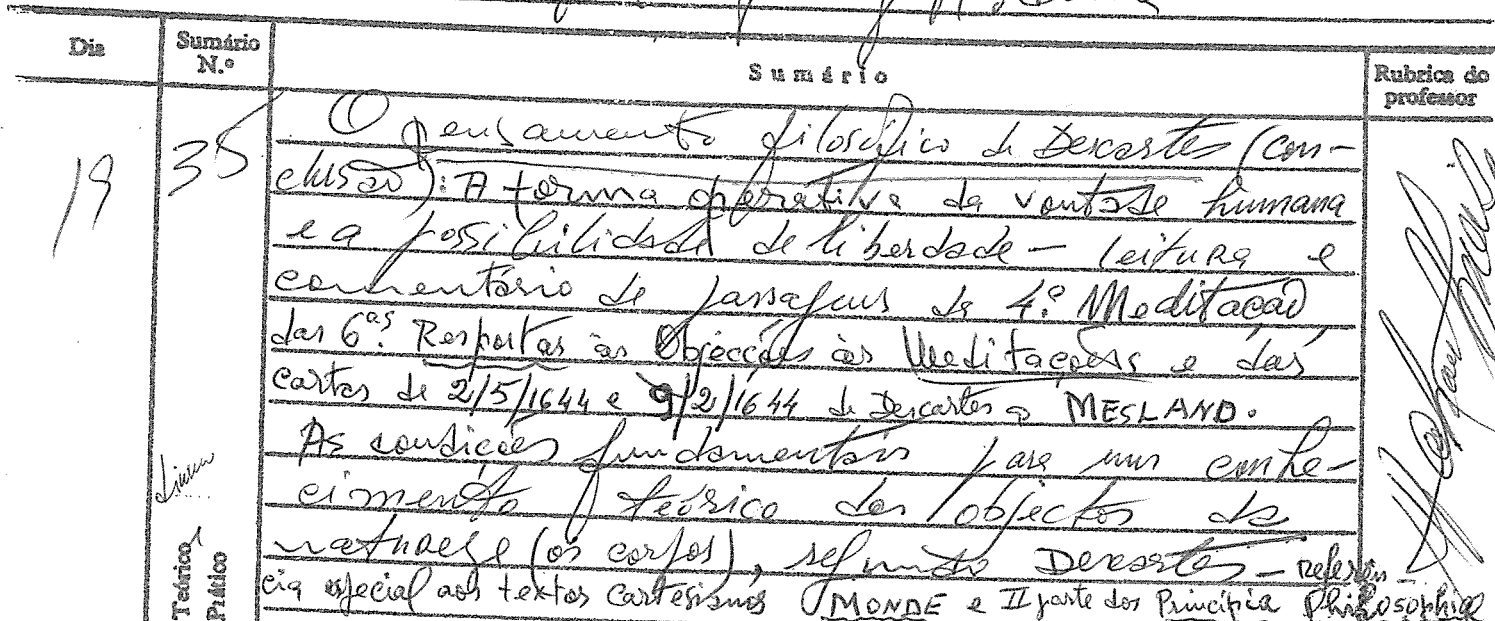 Dia
Sumário N.º
Sumário
Rubrica do professor
19
35
O pensamento filosófico de Descartes (con-
clusão): A forma operativa da vontade humana
e a possibilidade de liberdade — leitura e
comentário de passagens da 4.ª Meditação
das 6.as Respostas às Objecções às Meditações e das
cartas de 2/5/1644 e 9/2/1644 de Descartes a MESLAND.
As condições fundamentais para um conhe-
cimento teórico dos objectos da
natureza (os corpos), segundo Descartes — referên-
cia especial aos textos cartesianos MONDE e II parte dos Principia Philosophiae
Teórico
Prático